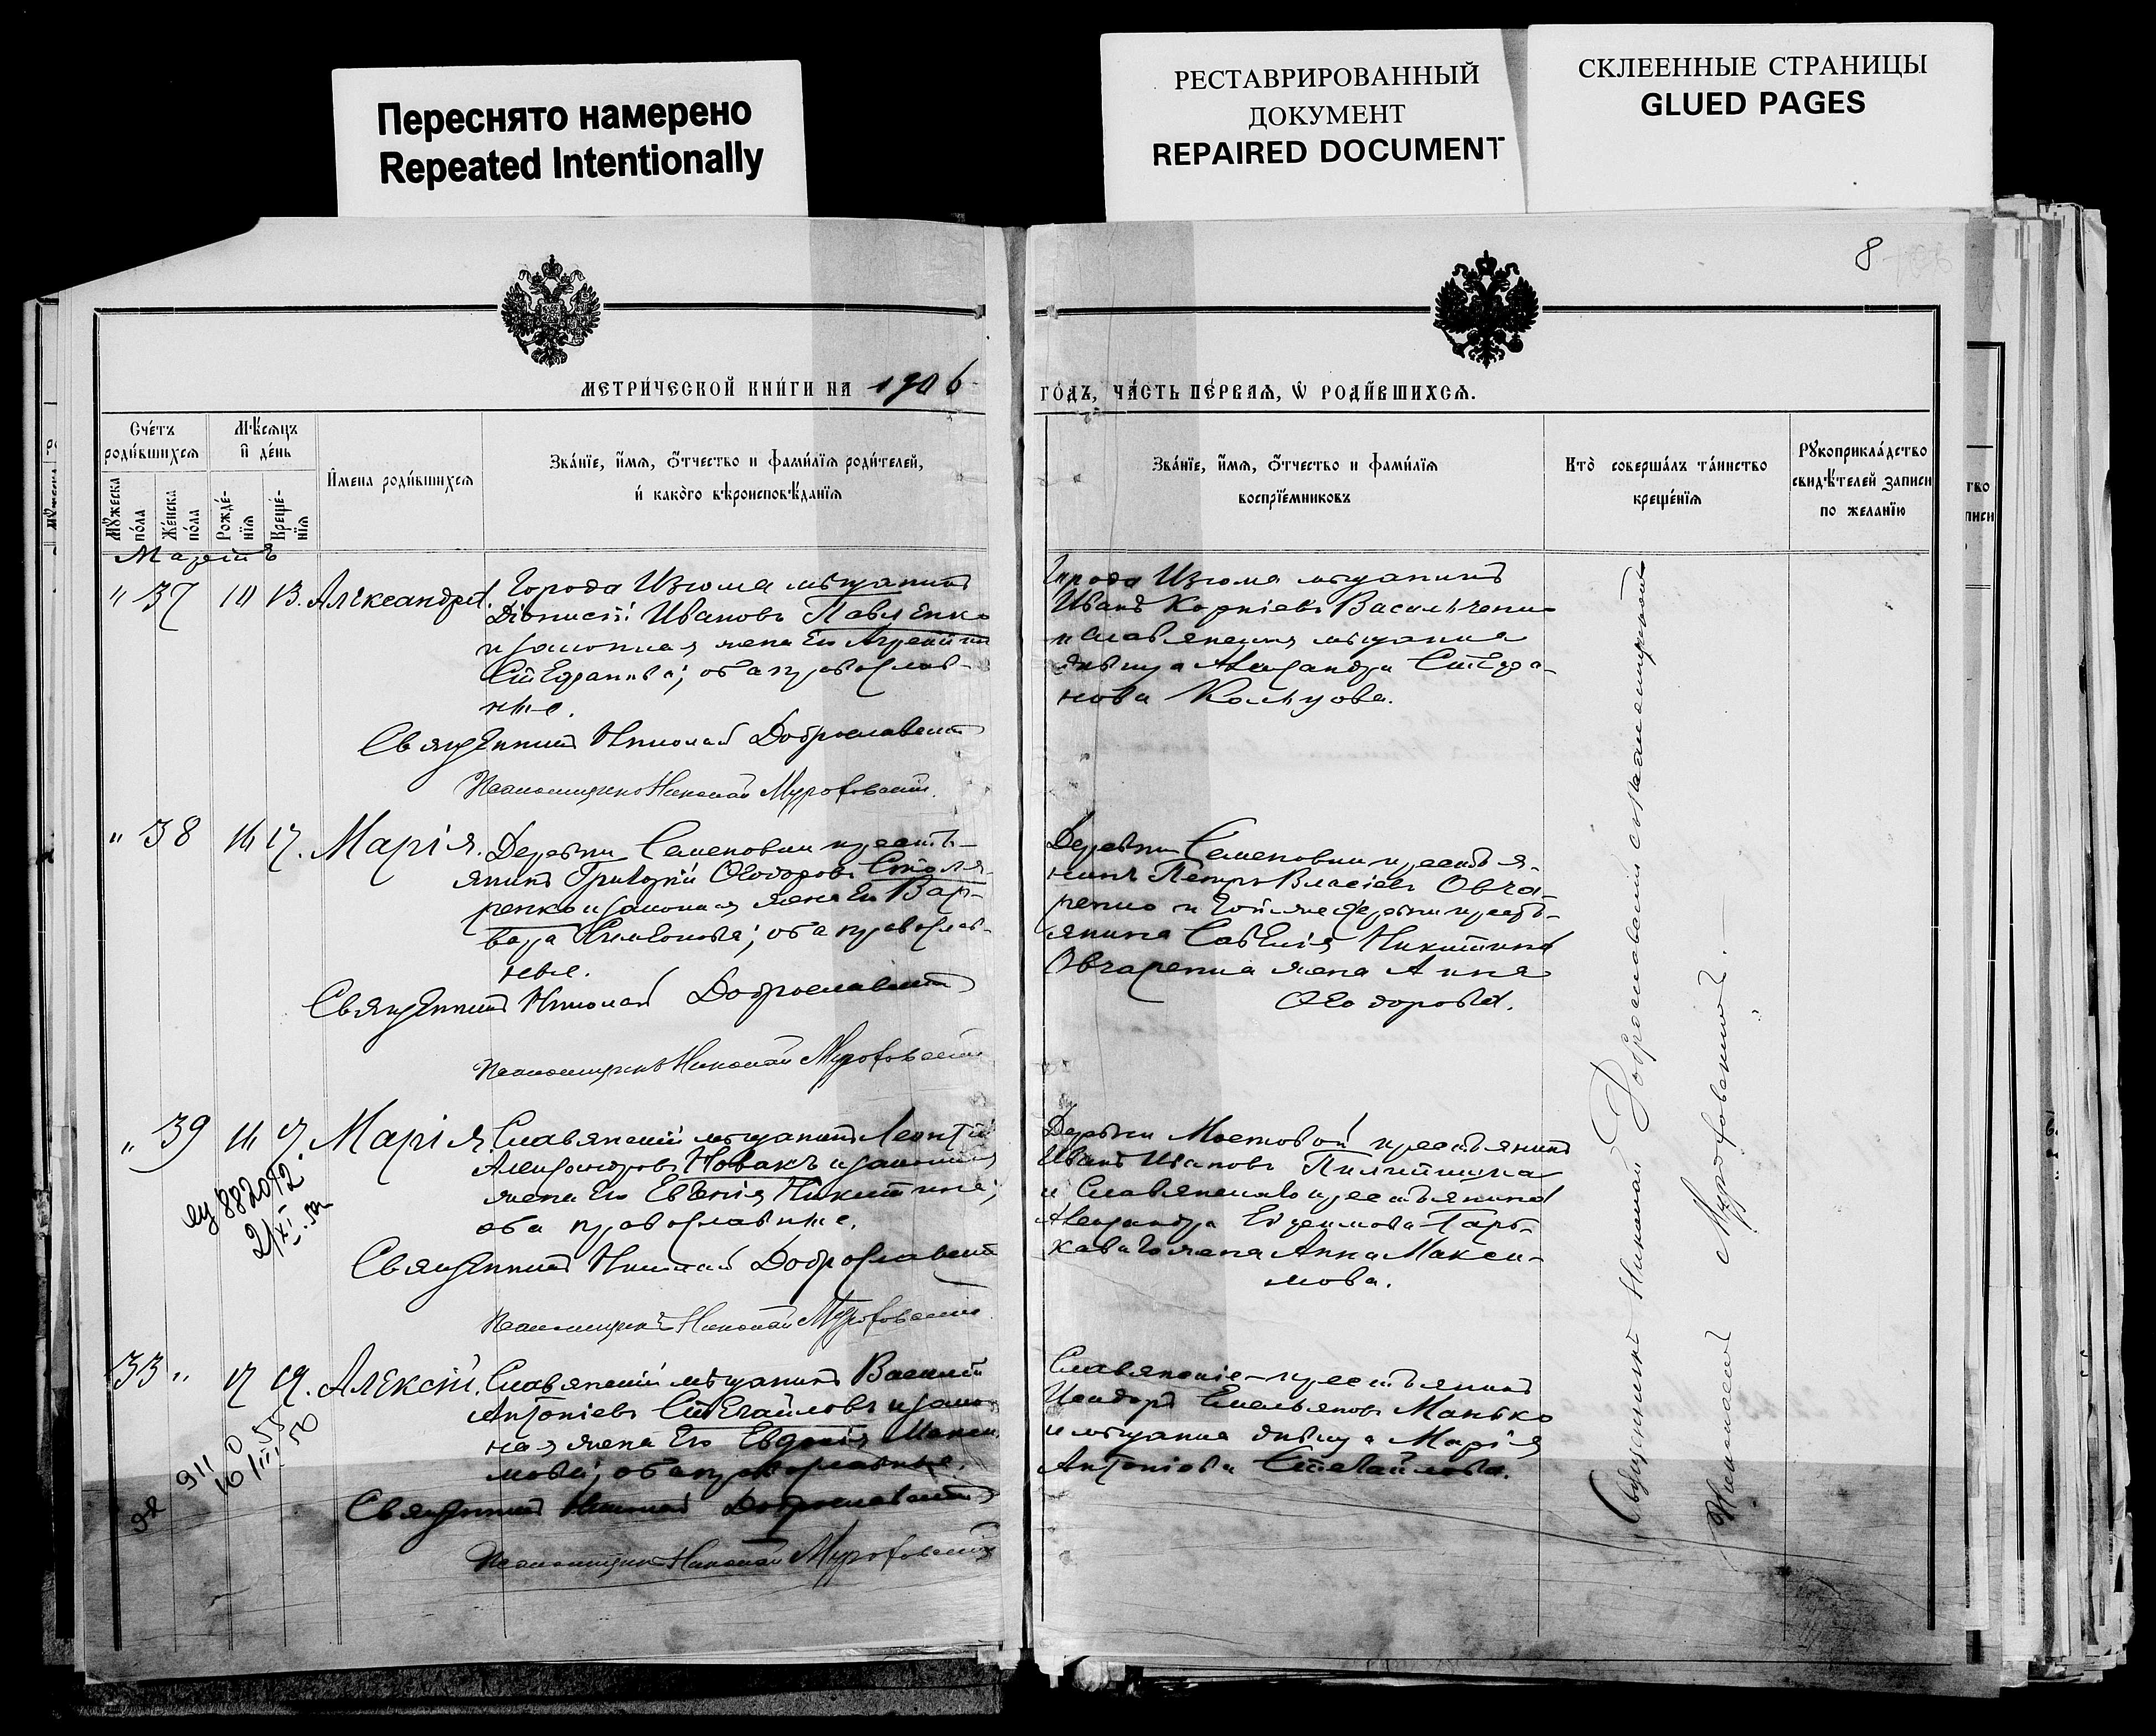 Переснято намерено
Repeated Intentionally
РЕСТАВРИРОВАННЫЙ
ДОКУМЕНТ
REPAIRED DOCUMENT
СКЛЕЕННЫЕ СТРАНИЦЫ
GLUED PAGES
8
МЕТРИ́ЧЕСКОЙ КНИ́ГИ НА 1906
ГО́ДЪ, ЧА́СТЬ ПЕ́РВАѦ, Ѡ РОДИ́ВШИХСѦ.
Сче́тъ
роди́вшихсѧ
Мѣ́сѧцъ
и҆ де́нь
Мꙋ́жеска
по́ла
Же́нска
по́ла
Рожде́-
нїѧ
Креще́-
нїѧ
И҆́мена роди́вшихсѧ
Зва́нїе, и҆́мѧ, о҆́тчество и фами́лїѧ роди́телей,
и҆ како́го вѣроисповѣ́данїѧ
Зва́нїе, и҆́мѧ, о҆́тчество и фами́лїѧ
воспрїе́мниковъ
Кто̀ соверша́лъ та́инство
креще́нїѧ
Рꙋкоприкла́дство
свидѣ́телей записи
по жела́нїю
Мартъ
" 37 13. Александра.
Города Изюма мѣщанинъ
Діонисій Ивановъ Павленко
и законная жена его
Стефанова; оба православ-
ные.
Священникъ Николай Доброславскій
Псаломщикъ Николай
Города Изюма мѣщанинъ
Иванъ Корніевъ Васильченко
и Славянская мѣщанка
дѣвица Александра Стефа-
нова Кольцова.
" 38 17. Марія.
Деревни Семеновки кресть-
янинъ Григорій Ѳеодоровъ Столя-
ренко и законная жена его Вар-
вара; оба православ-
ные.
Священникъ Николай Доброславскій
Псаломщикъ Николай
Деревни Семеновки крестья-
нинъ Петръ Власіевъ Овча-
ренко и той же деревни кресть-
янина Савелія Никитина
Овчаренка жена Анна
Ѳеодорова.
" 39 17. Марія.
Славянскій мѣщанинъ Леонтій
Александровъ Новакъ и законная
жена его Евгенія Никитина;
оба православные.
Священникъ Николай Доброславскій
Псаломщикъ Николай
882092
Деревни Маяковой крестьянинъ
Иванъ Ивановъ
и Славянскаго крестьянина
Александра Евфимова Гарь-
каваго жена Анна Макси-
мова.
33 " 17 19. Алексій.
Славянскій мѣщанинъ Василій
Антоніевъ и закон-
ная жена его Евдокія Макси-
мова; оба православные.
Священникъ Николай Доброславскій
Псаломщикъ Николай
911
Славянскіе крестьянинъ
Исидоръ Емельяновъ Манько
и мѣщанка дѣвица Марія
Антоніова
Священникъ Николай Доброславскій съ псаломщикомъ
Николаемъ